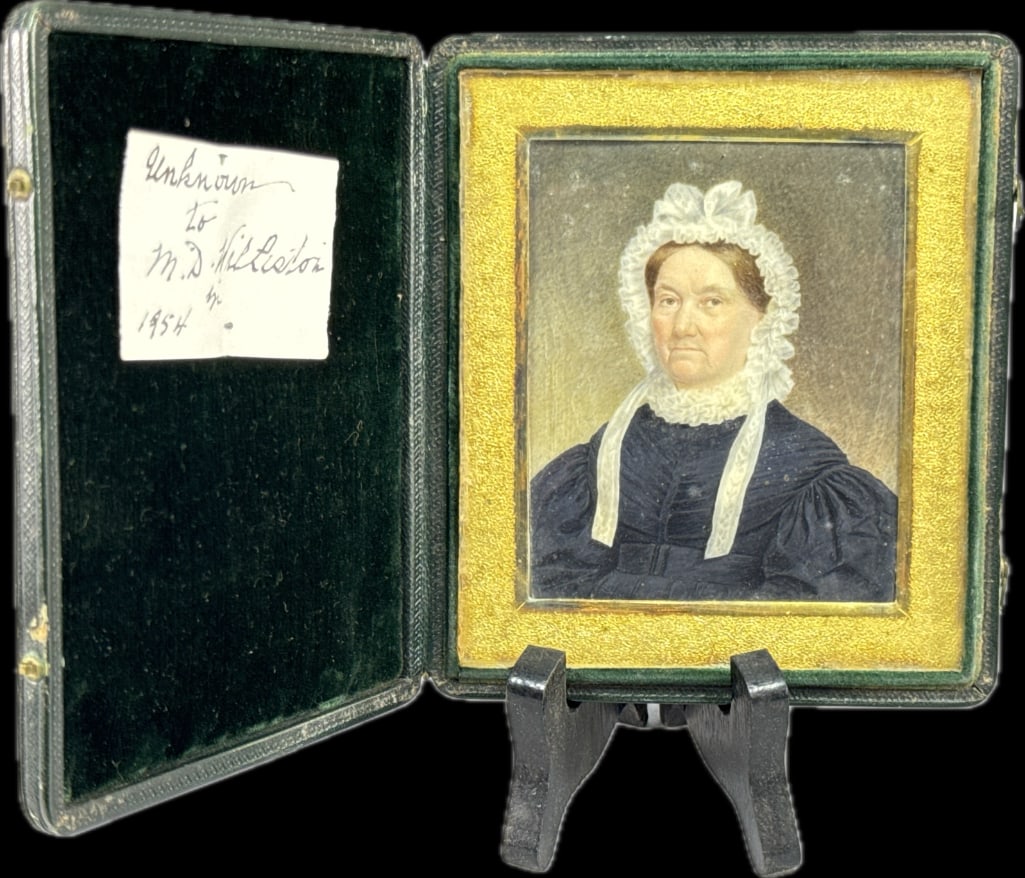 Unknown
to
M.D. Williston
in
1954